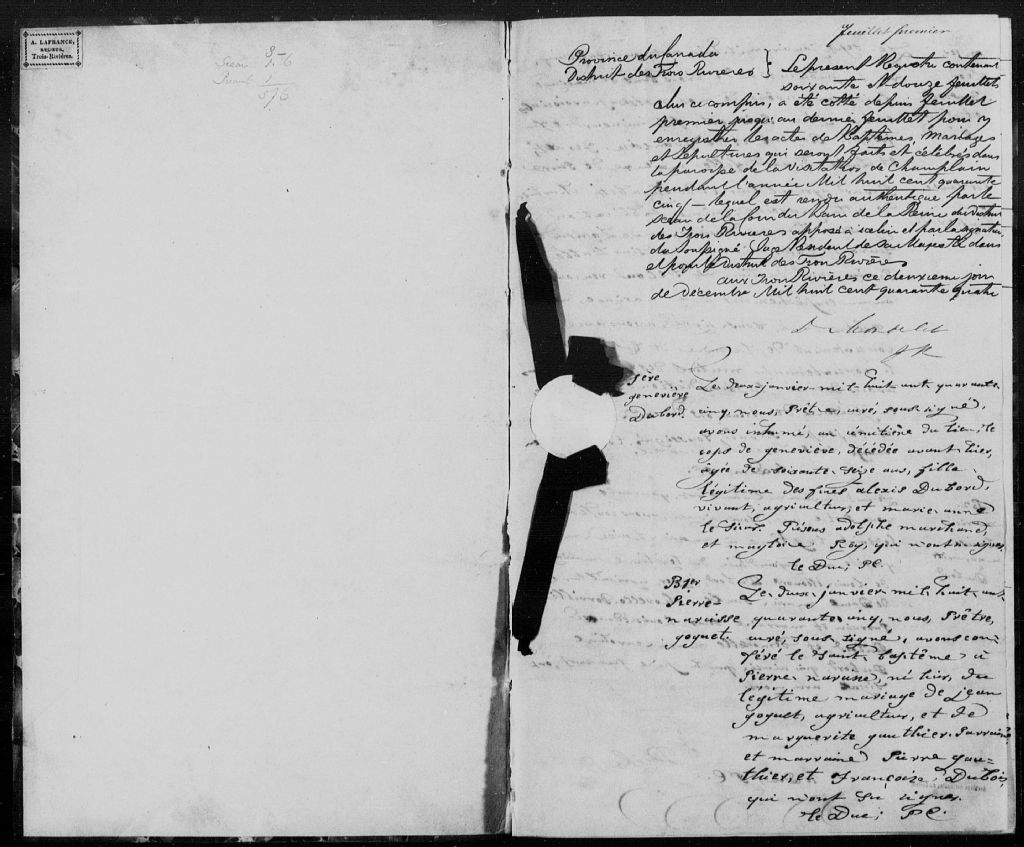 A. LAFRANCE,
RELIEUR,
Trois-Rivières.
5/6
Feuillet premier
Province du Canada
District des Trois Rivieres
Le present Registre contenant
soixante et douze feuillets
celui ci compris, a été cotté depuis feuillet
premier jusqu'au dernier feuillet pour y
enregistrer les actes de Baptêmes, Mariages
et Sepultures qui seront faits et célébrés dans
la paroisse de la Visitation de Champlain
pendant l'année Mil huit cent quarante
cinq — lequel est rendu authentique par le
sceau de la Cour du Banc de la Reine du District
des Trois Rivieres apposé à celui et par la signature
du soussigné Juge Resident de Sa Majesté dans
et pour le District des Trois Rivières
aux Trois Rivières ce deuxieme jour
de Decembre Mil huit cent quarante quatre
D. Mondelet
1ere
genevière
Dubord.
Le deux janvier mil huit cent quarante
cinq, nous, Prêtre, curé, sous signé,
avons inhumé, au cimitière du lieu, le
corps de geneviève, décédée avant hier,
agée de soixante seize ans, fille
légitime des feues alexis Dubord,
vivant, agricultur, et marie anne
le Sieur. Présens adolphe marchand,
et magloire Roy, qui n'ont su signer.
le Duc; P.C.
B1er
Pierre
narcisse
goguet
Le deux janvier mil huit cent
quarante cinq, nous, Prêtre,
curé, sous signé, avons con
féré le saint baptême à
Pierre narcisse, né hier, du
légitime mariage de Jean
goguet, agricultur, et de
marguerite gauthier. Parrain
et marraine Pierre gau=
thier, et françoise Dubois,
qui n'ont su signer.
le Duc; P.C.